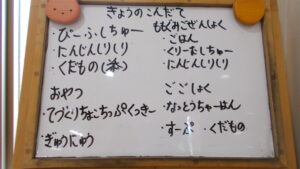 きょうのこんだて
・びーふしちゅー
・にんじんしりしり
・くだもの()
おやつ
・てづくりちょこちっぷくっきー
・ぎゅうにゅう
ももぐみごぜんしょく
・ごはん
・くりーむしちゅー
・にんじんしりしり
ごごしょく
・なっとうちゃーはん
・すーぷ ・くだもの